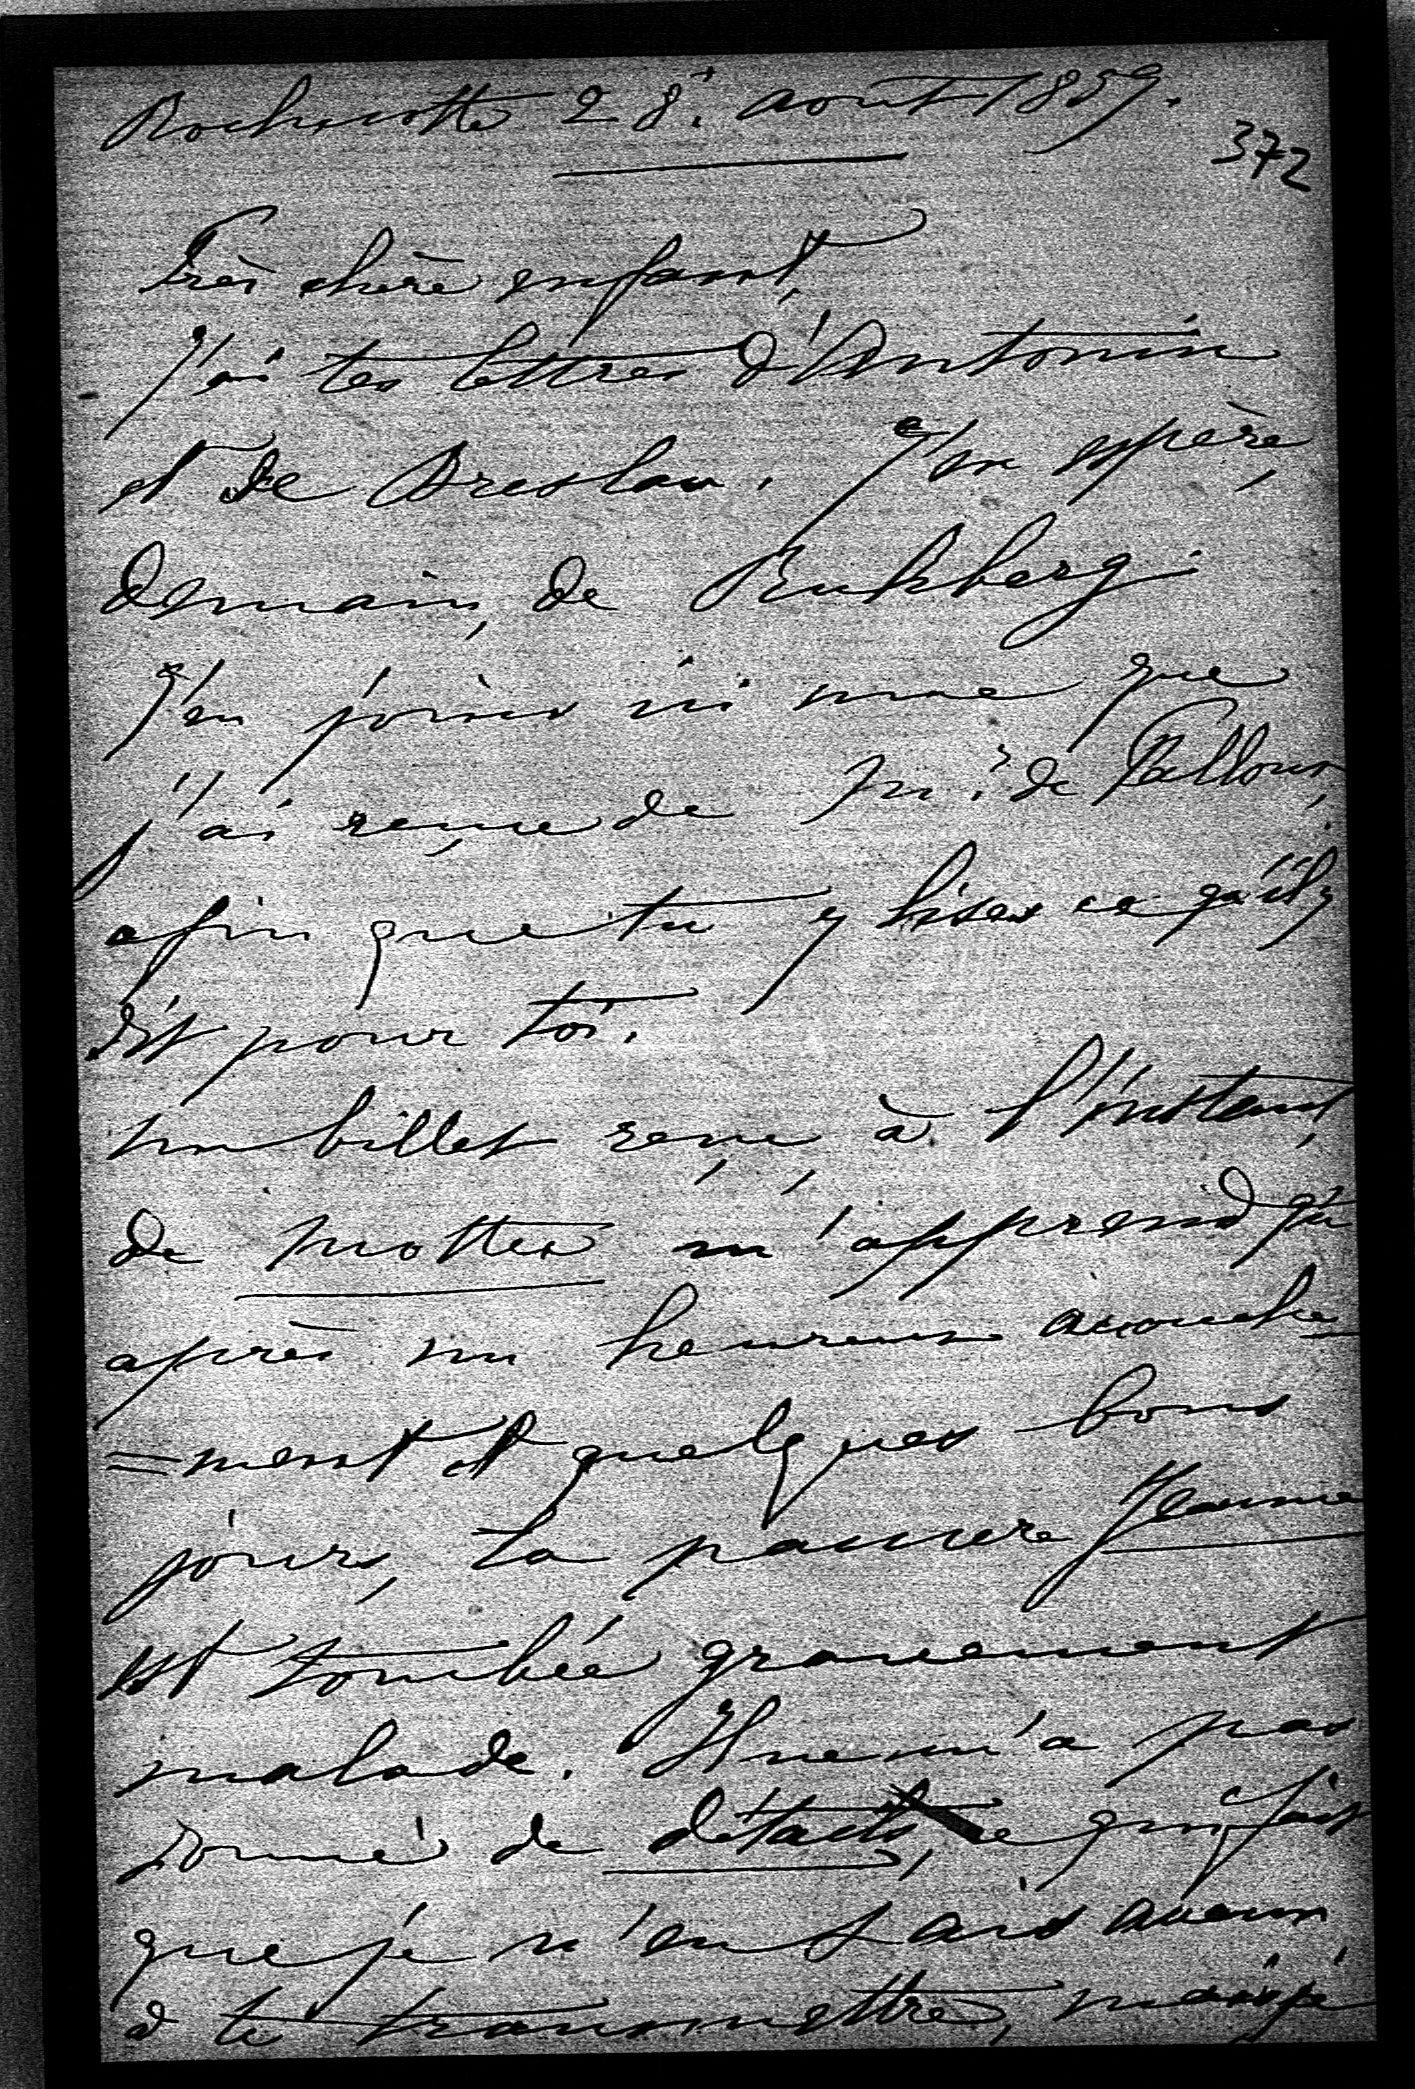 Rochecotte 28. août 1859.
372
Très chère enfant,
J'ai tes lettres d'Antonin
et de Breslau. J'en espère,
demain, de
J'en joins ici une que
j'ai reçue de Mr. de Falloux,
afin que tu y lises ce qu'il y
dit pour toi.
un billet reçu, à l'instant,
de Mottes m'apprend qu'
après un heureux accouche
=ment et quelques bons
jours, la pauvre Jeanne
est tombée gravement
malade. Il ne m'a pas
donné de détails, ce qui fait
que je n'en sais aucun
à te transmettre, mais je